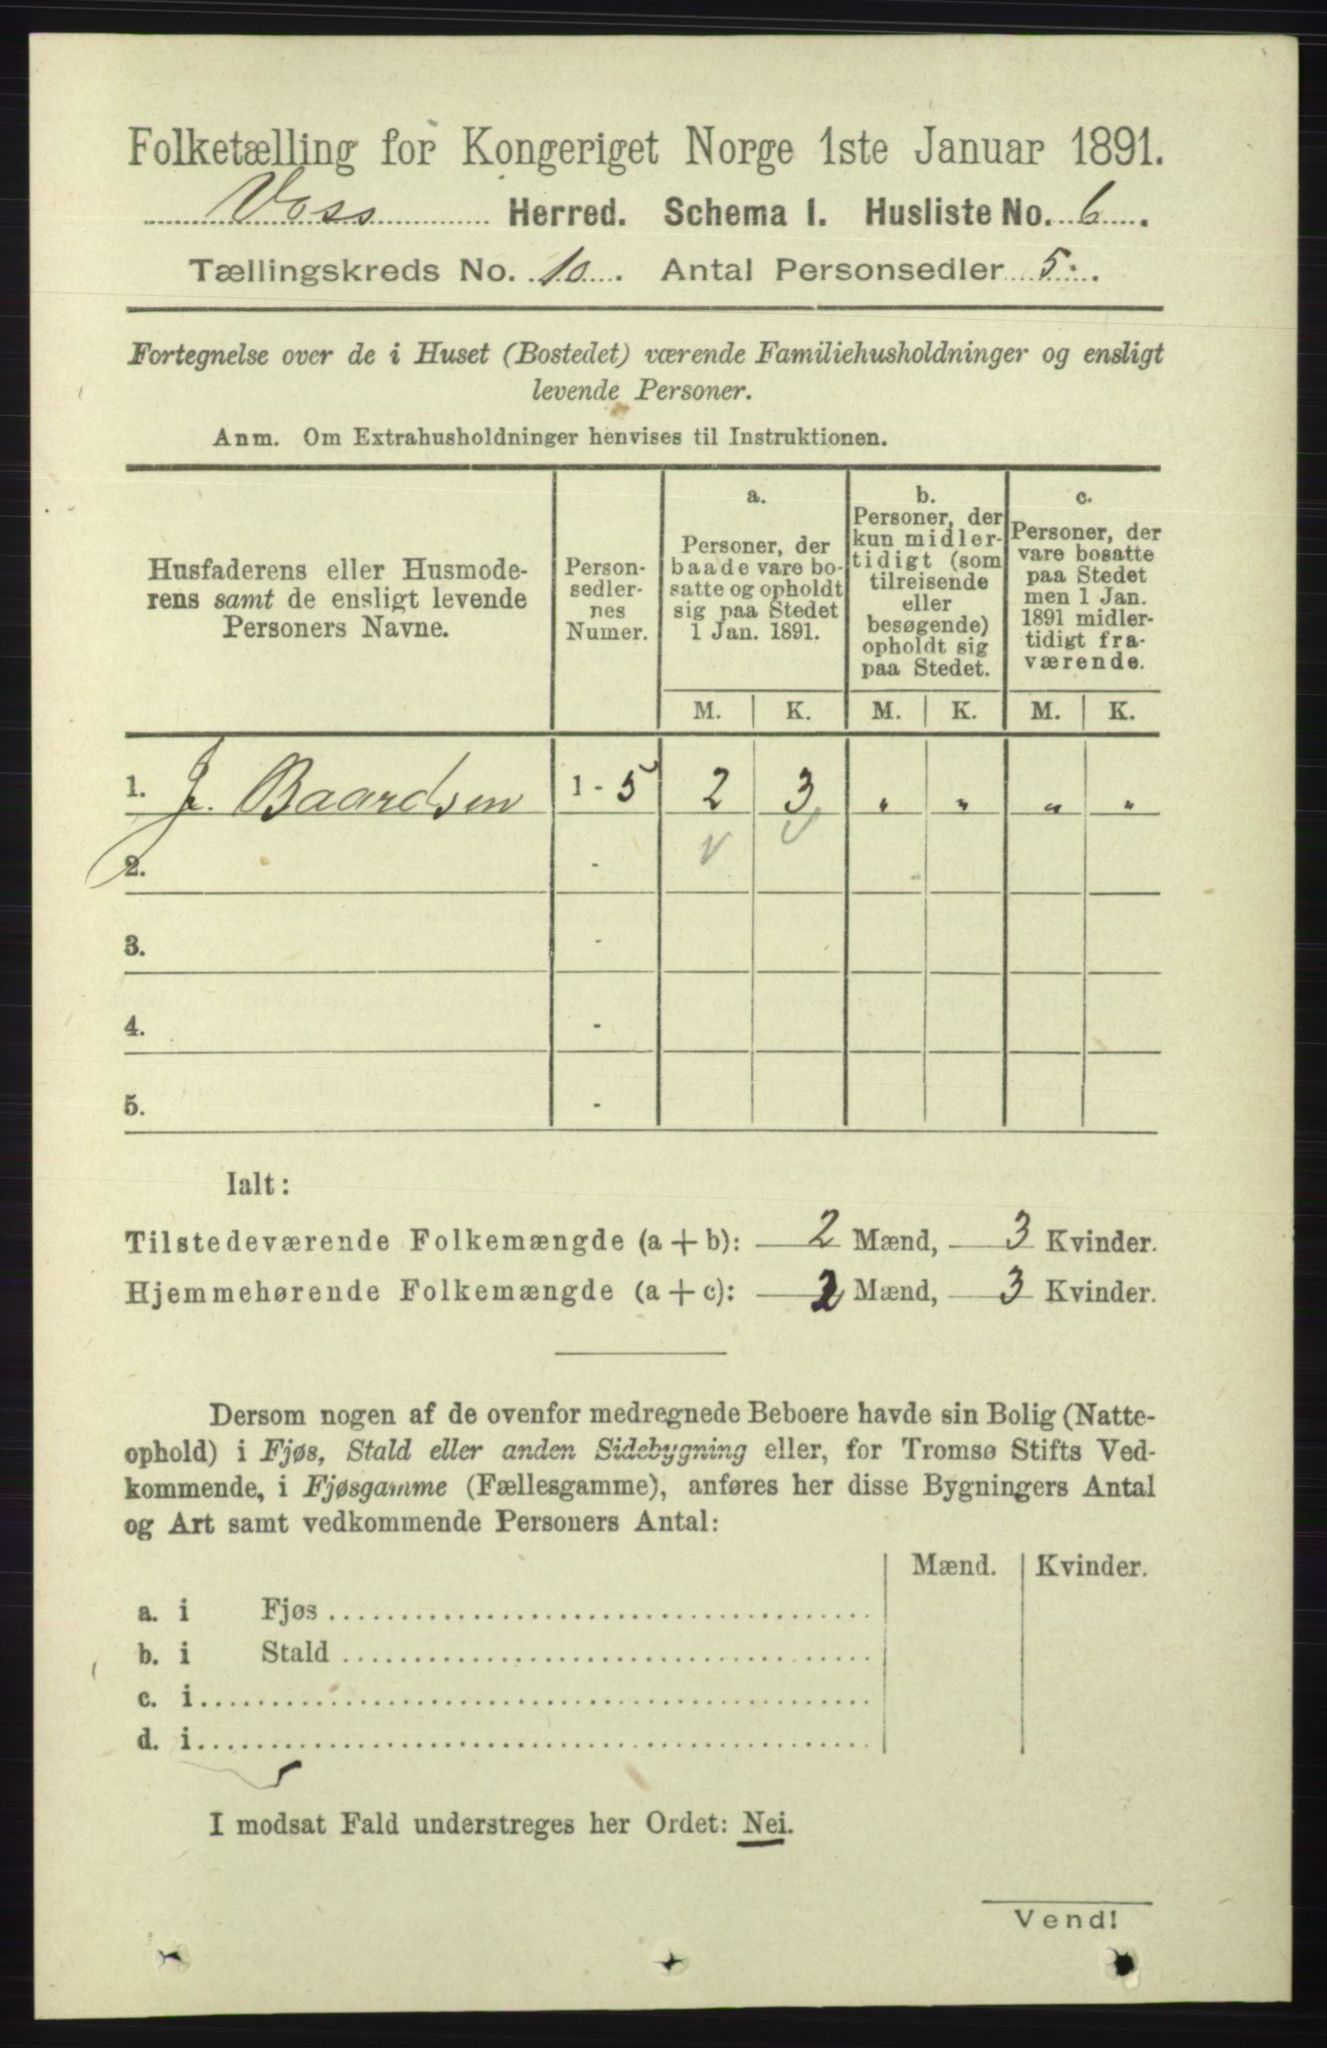 Folketælling for Kongeriget Norge 1ste Januar 1891.
Voss Herred. Schema 1. Husliste No. 6.
Tællingskreds No. 10. Antal Personsedler 5.
Fortegnelse over de i Huset (Bostedet) værende Familiehusholdninger og ensligt
levende Personer.
Anm. Om Extrahusholdninger henvises til Instruktionen.
Husfaderens eller Husmode-
rens samt de ensligt levende
Personers Navne.
Person-
sedler-
nes
Numer.
a.
Personer, der
baade vare bo-
satte og opholdt
sig paa Stedet
1 Jan. 1891.
b.
Personer, der
kun midler-
tidigt (som
tilreisende
eller
besøgende)
opholdt sig
paa Stedet.
c.
Personer, der
vare bosatte
paa Stedet
men 1 Jan.
1891 midler-
tidigt fra-
værende.
M. K. M. K. M. K.
1. J. Baardsen 1 - 5 2 3 " " " "
2. -
3. -
4. -
5. -
Ialt:
Tilstedeværende Folkemængde (a + b): 2 Mænd, 3 Kvinder.
Hjemmehørende Folkemængde (a + c): 2 Mænd, 3 Kvinder.
Dersom nogen af de ovenfor medregnede Beboere havde sin Bolig (Natte-
ophold) i Fjøs, Stald eller anden Sidebygning eller, for Tromsø Stifts Ved-
kommende, i Fjøsgamme (Fællesgamme), anføres her disse Bygningers Antal
og Art samt vedkommende Personers Antal:
Mænd. Kvinder.
a. i Fjøs
b. i Stald
c. i
d. i
I modsat Fald understreges her Ordet: Nei.
Vend!